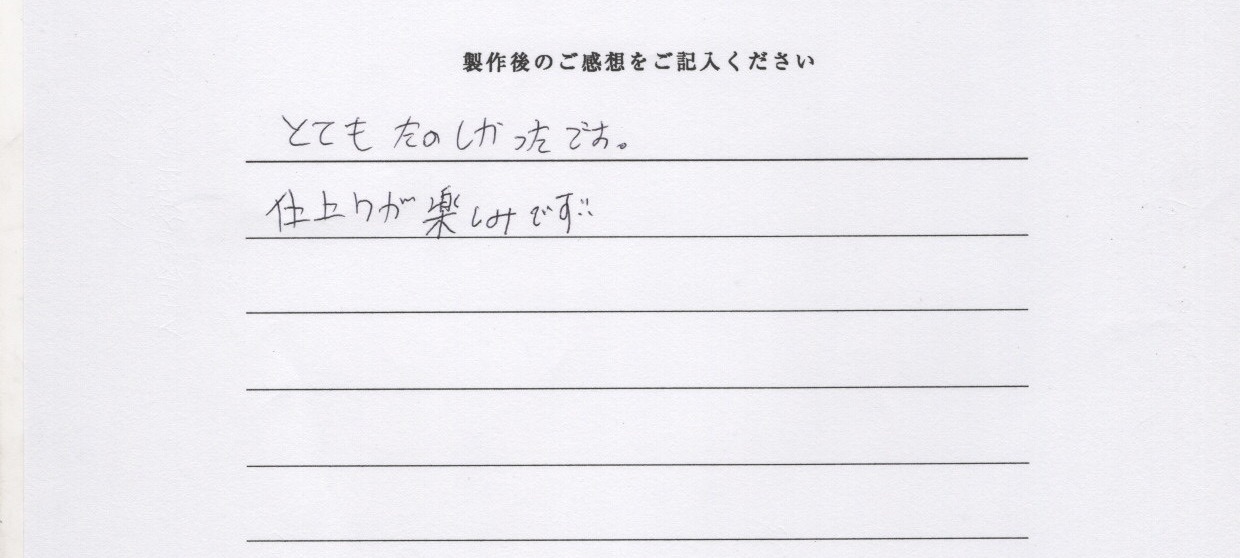 製作後のご感想をご記入ください
とても たのしかったです。
仕上りが楽しみです